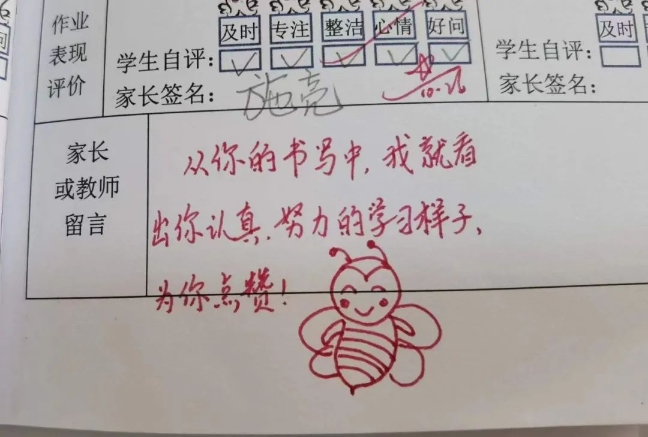 作业 及时 专注 整洁 心情 好问 及时
表现 学生自评： 学生自评：
评价 家长签名： 施亮 10.26 家长签名：
家长
或教师
留言
从你的书写中，我就看
出你认真、努力的学习样子、
为你点赞！